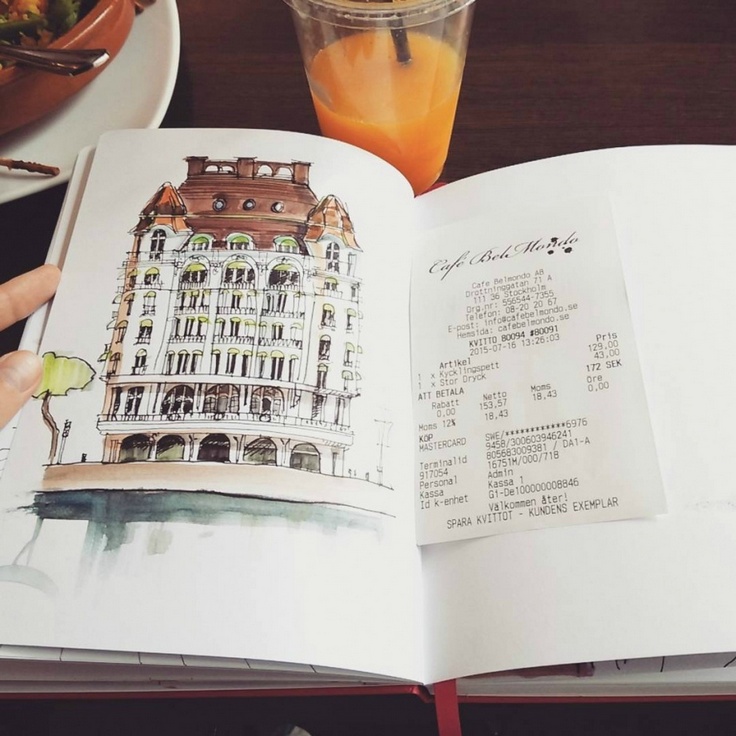 Café Bel Mondo
Cafe Belmondo AB
Drottninggatan 71 A
111 36 Stockholm
Org.nr: 556544-7355
Telefon: 08-20 20 67
E-post: info@cafebelmondo.se
Hemsida: cafebelmondo.se
KVITTO 80094 #80091
2015-07-16 13:26:03
Artikel Pris
1 x Kycklingspett 129,00
1 x Stor Dryck 43,00
ATT BETALA 172 SEK
Rabatt Netto Moms Öre
0,00 153,57 18,43 0,00
Moms 12% 18,43
KÖP
MASTERCARD SWE/************6976
9458/300603946241
Terminalid 805683009381 / DA1-A
917054 16751M/000/718
Personal Admin
Kassa Kassa 1
Id k-enhet G1-De100000008846
Välkommen åter!
SPARA KVITTOT - KUNDENS EXEMPLAR